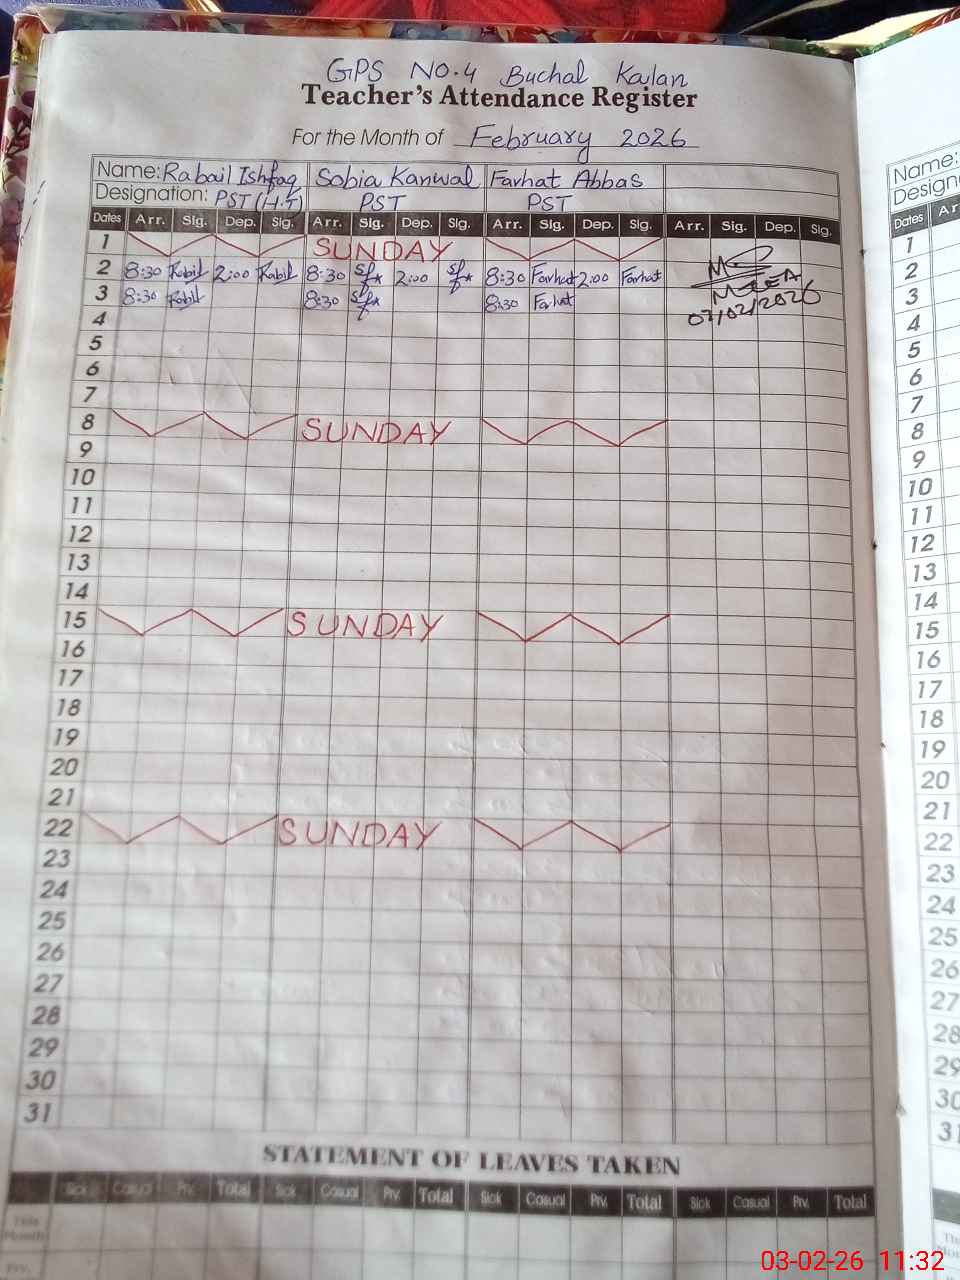 GPS NO.4 Buchal Kalan
Teacher's Attendance Register
For the Month of February 2026
Name: Rabail Ishfaq Sobia Kanwal Farhat Abbas
Designation: PST (H.T) PST PST
Dates Arr. Sig. Dep. Sig. Arr. Sig. Dep. Sig. Arr. Sig. Dep. Sig. Arr. Sig. Dep. Sig.
1 SUNDAY
2 8:30 Rabil 2:00 Rabil 8:30 2:00 8:30 Farhat 2:00 Farhat
3 8:30 Rabil 8:30 8:30 Farhat
4
5
6
7
8 SUNDAY
9
10
11
12
13
14
15 SUNDAY
16
17
18
19
20
21
22 SUNDAY
23
24
25
26
27
28
29
30
31
STATEMENT OF LEAVES TAKEN
Sick Casual Prv. Total Sick Casual Prv. Total Sick Casual Prv. Total Sick Casual Prv. Total
This Month
Prv.
Name:
Dates
1
2
3
4
5
6
7
8
9
10
11
12
13
14
15
16
17
18
19
20
21
22
23
24
25
26
27
28
29
30
31
03-02-26 11:32